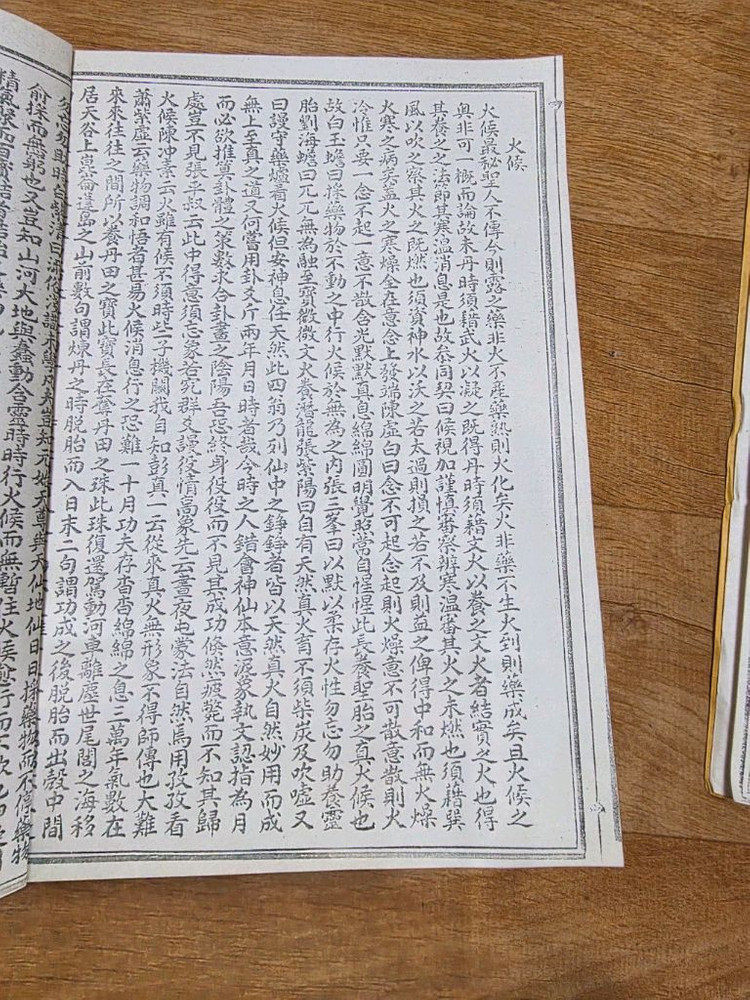 火候
火候最秘聖人不傳今則露之藥非火不產藥熟則火化矣火非藥不生火到則藥成矣且火候之
奧非可一概而論故未丹時須藉武火以凝之既得丹時須藉文火以養之文火者結實之火也得
其養之之法節其寒温消息是也故叅同契曰候視加謹慎審察辨寒温審其火之未燃也須藉巽
風以吹之察其火之既燃也須資神水以沃之若太過則損之若不及則益之俾得中和而無火燥
火寒之病矣蓋火之寒燥全在意念上發端陳虛白曰念不可起念起則火燥意不可散意散則火
冷惟只要一念不起一意不散含光默默真息綿綿圓明覺照常自惺惺此長養聖胎之真火候也
故白玉蟾曰採藥物於不動之中行火候於無為之内張三峯曰以默以柔存火性勿忘勿助養靈
胎劉海蟾曰兀兀無為融至寶微微文火養潛龍張紫陽曰自有天然真火育不須柴炭及吹噓又
曰謾守藥爐看火候但安神息任天然此四翁乃列仙中之錚錚者皆以天然真火自然妙用而成
無上至真之道又何嘗用卦爻斤兩年月日時者哉今時之人錯會神仙本意泥象執文認指為月
而必欲推算卦體之策數求合卦畫之陰陽吾恐終身役役而不見其成功倏然疲斃而不知其歸
處豈不見張平叔云此中得意須忘象若究羣爻謾役情高象先云晝夜屯蒙法自然焉用孜孜看
火候陳冲素云火雖有候不須時些子機關我自知彭真一云從來真火無形象不得師傳也大難
蕭紫虛云藥物調和悟者甚易火候消息行之恐難一十月功夫存杳杳綿綿之息三萬年氣數在
來來往往之間所以養丹田之寶此寶長在奪丹田之珠此珠復還駕動河車離塵世尾閭之海移
居天谷上崑崙蓬島之山前數句謂煉丹之時脱胎而入日末二句謂功成之後脱胎而出殼中間
俞採而無窮也又豈知山河大地與蠢動含靈時時行火候而無暫住火候